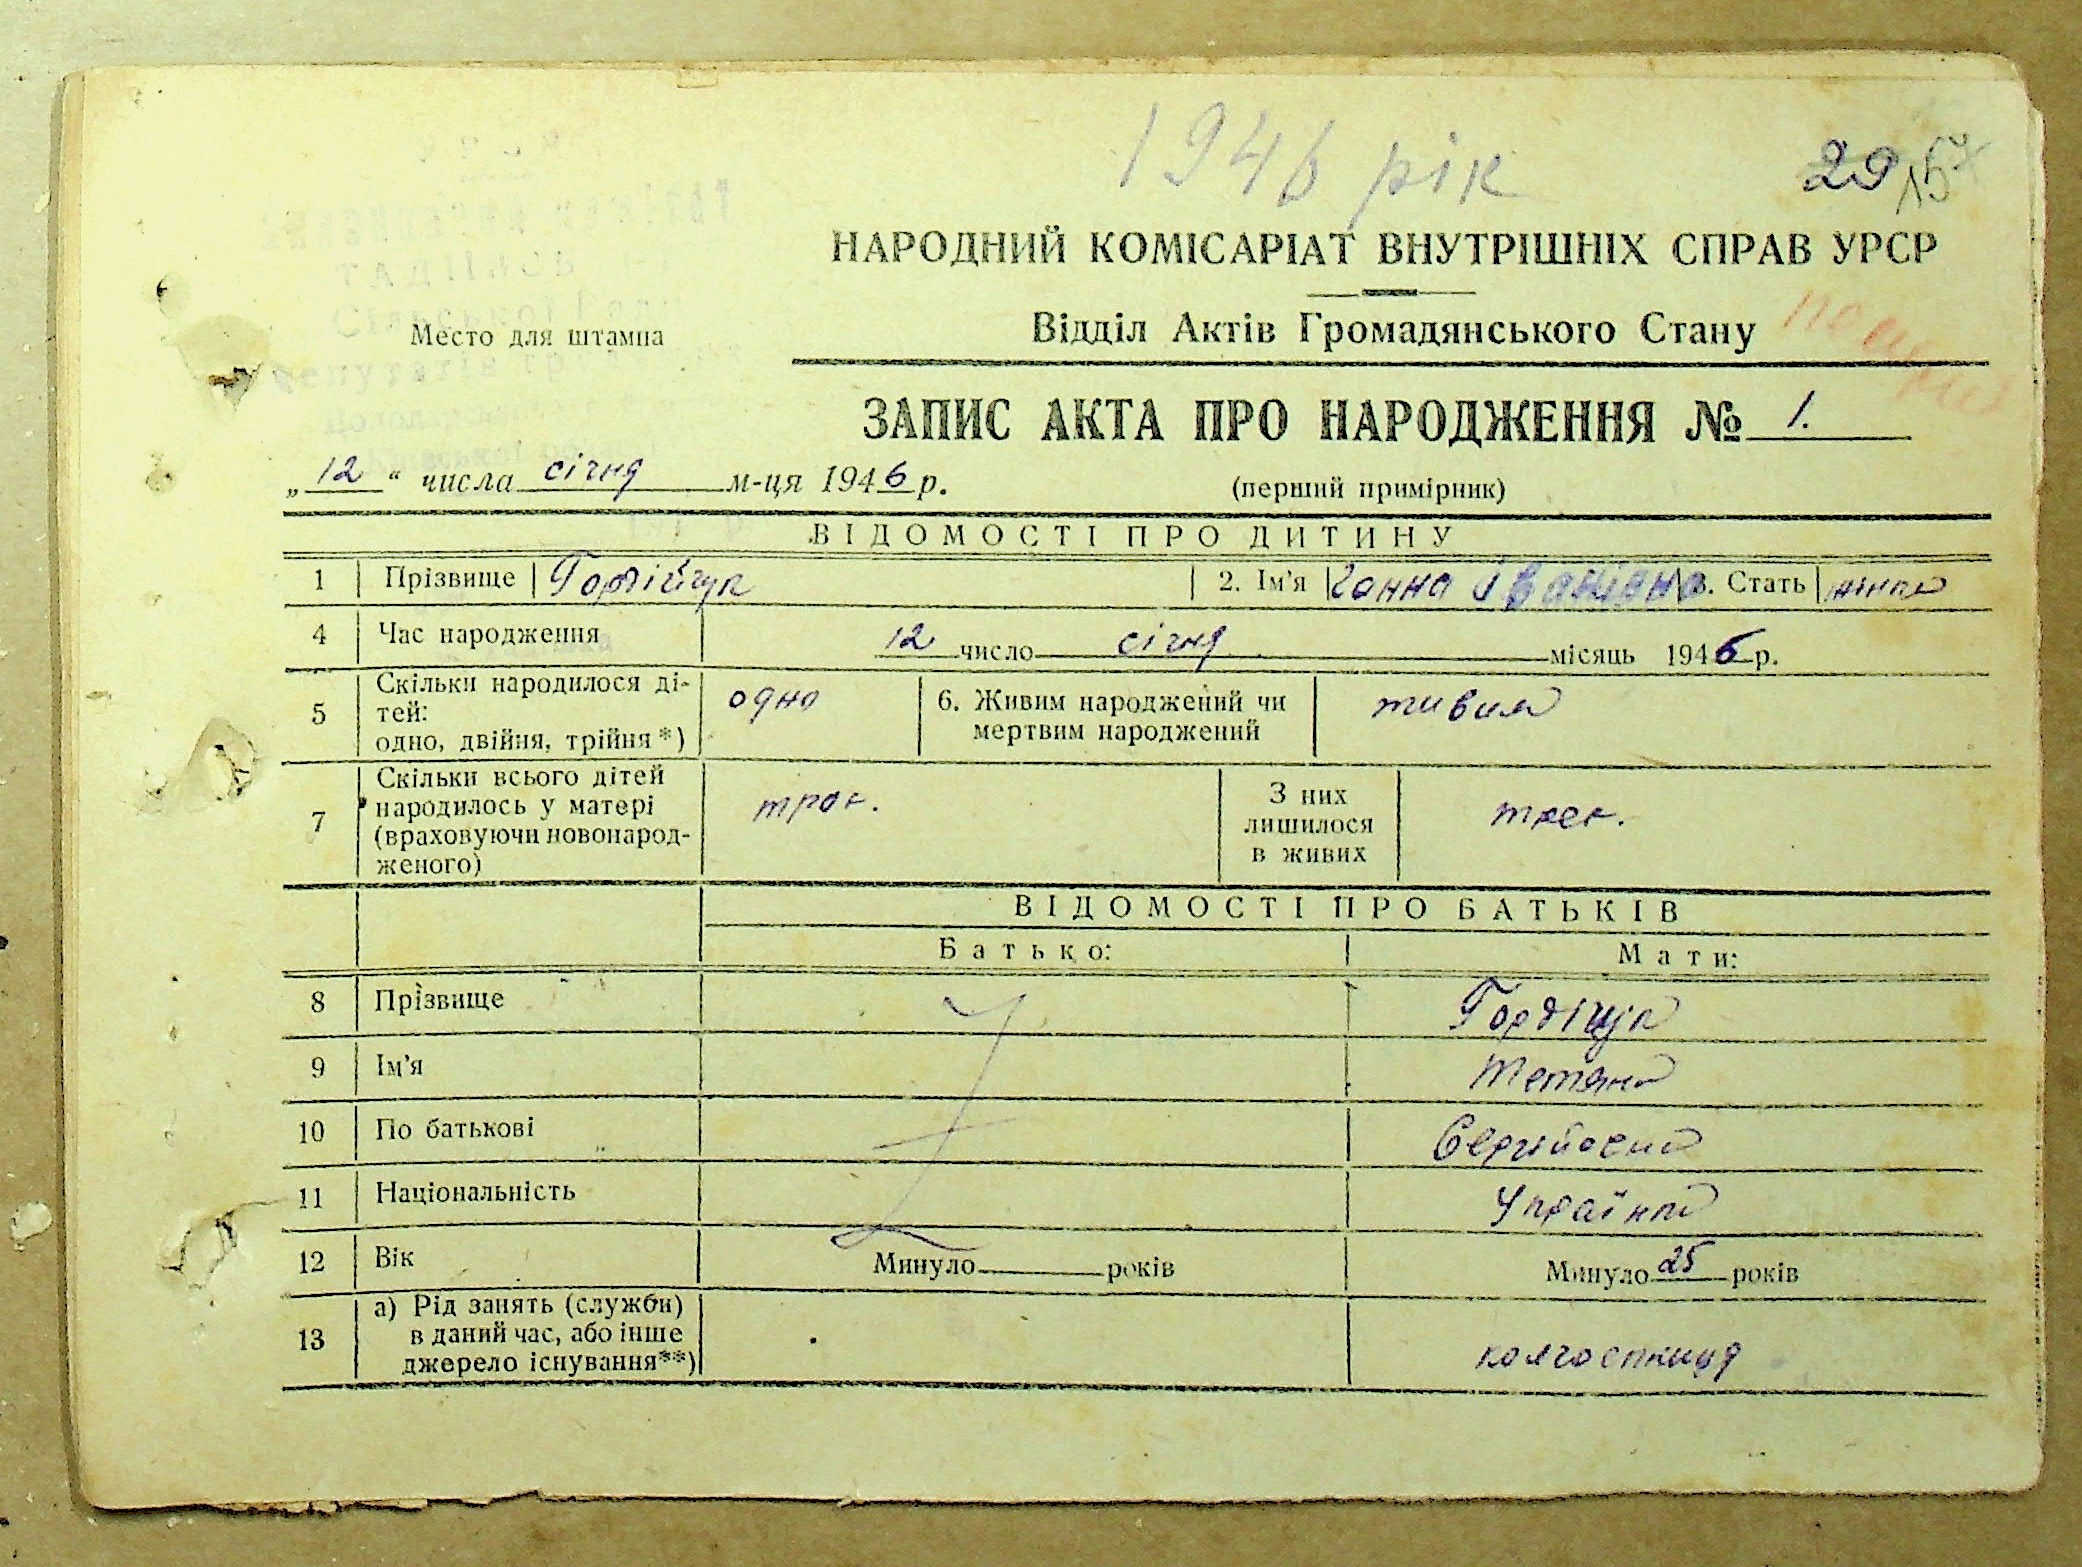 1946 рік
29
НАРОДНИЙ КОМІСАРІАТ ВНУТРІШНІХ СПРАВ УРСР
Відділ Актів Громадянського Стану
Место для штампа
ЗАПИС АКТА ПРО НАРОДЖЕННЯ № 1.
„12“ числа січня м-ця 1946 р.
(перший примірник)
ВІДОМОСТІ ПРО ДИТИНУ
1 Прізвище Гордійчук 2. Ім'я Ганна Іванівна 3. Стать жіноч
4 Час народження 12 число січня місяць 1946 р.
5 Скільки народилося ді-
тей:
одно, двійня, трійня*) одно 6. Живим народжений чи
мертвим народжений живим
7 Скільки всього дітей
народилось у матері
(враховуючи новонарод-
женого) троє. З них
лишилося
в живих троє.
ВІДОМОСТІ ПРО БАТЬКІВ
Батько: Мати:
8 Прізвище Гордічук
9 Ім'я Тетяна
10 По батькові Сергійовна
11 Національність Українка
12 Вік Минуло років Минуло 25 років
13 а) Рід занять (служби)
в даний час, або інше
джерело існування**) колгоспниця